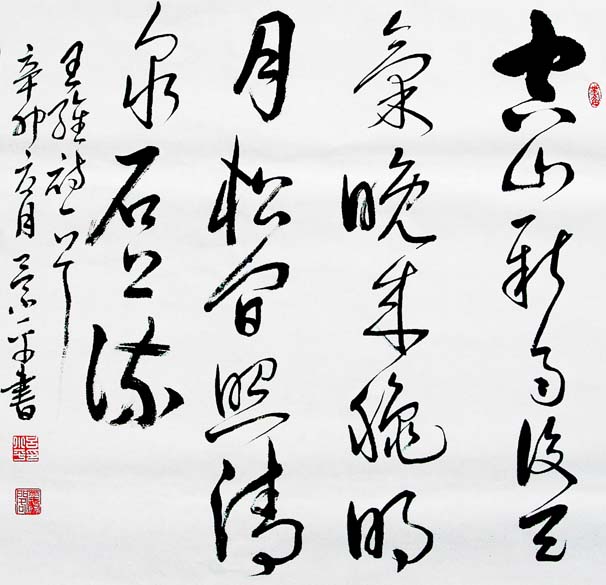 空山新雨後天
氣晚來秋明
月松間照清
泉石上流
王維詩一首
辛卯 月 景平書